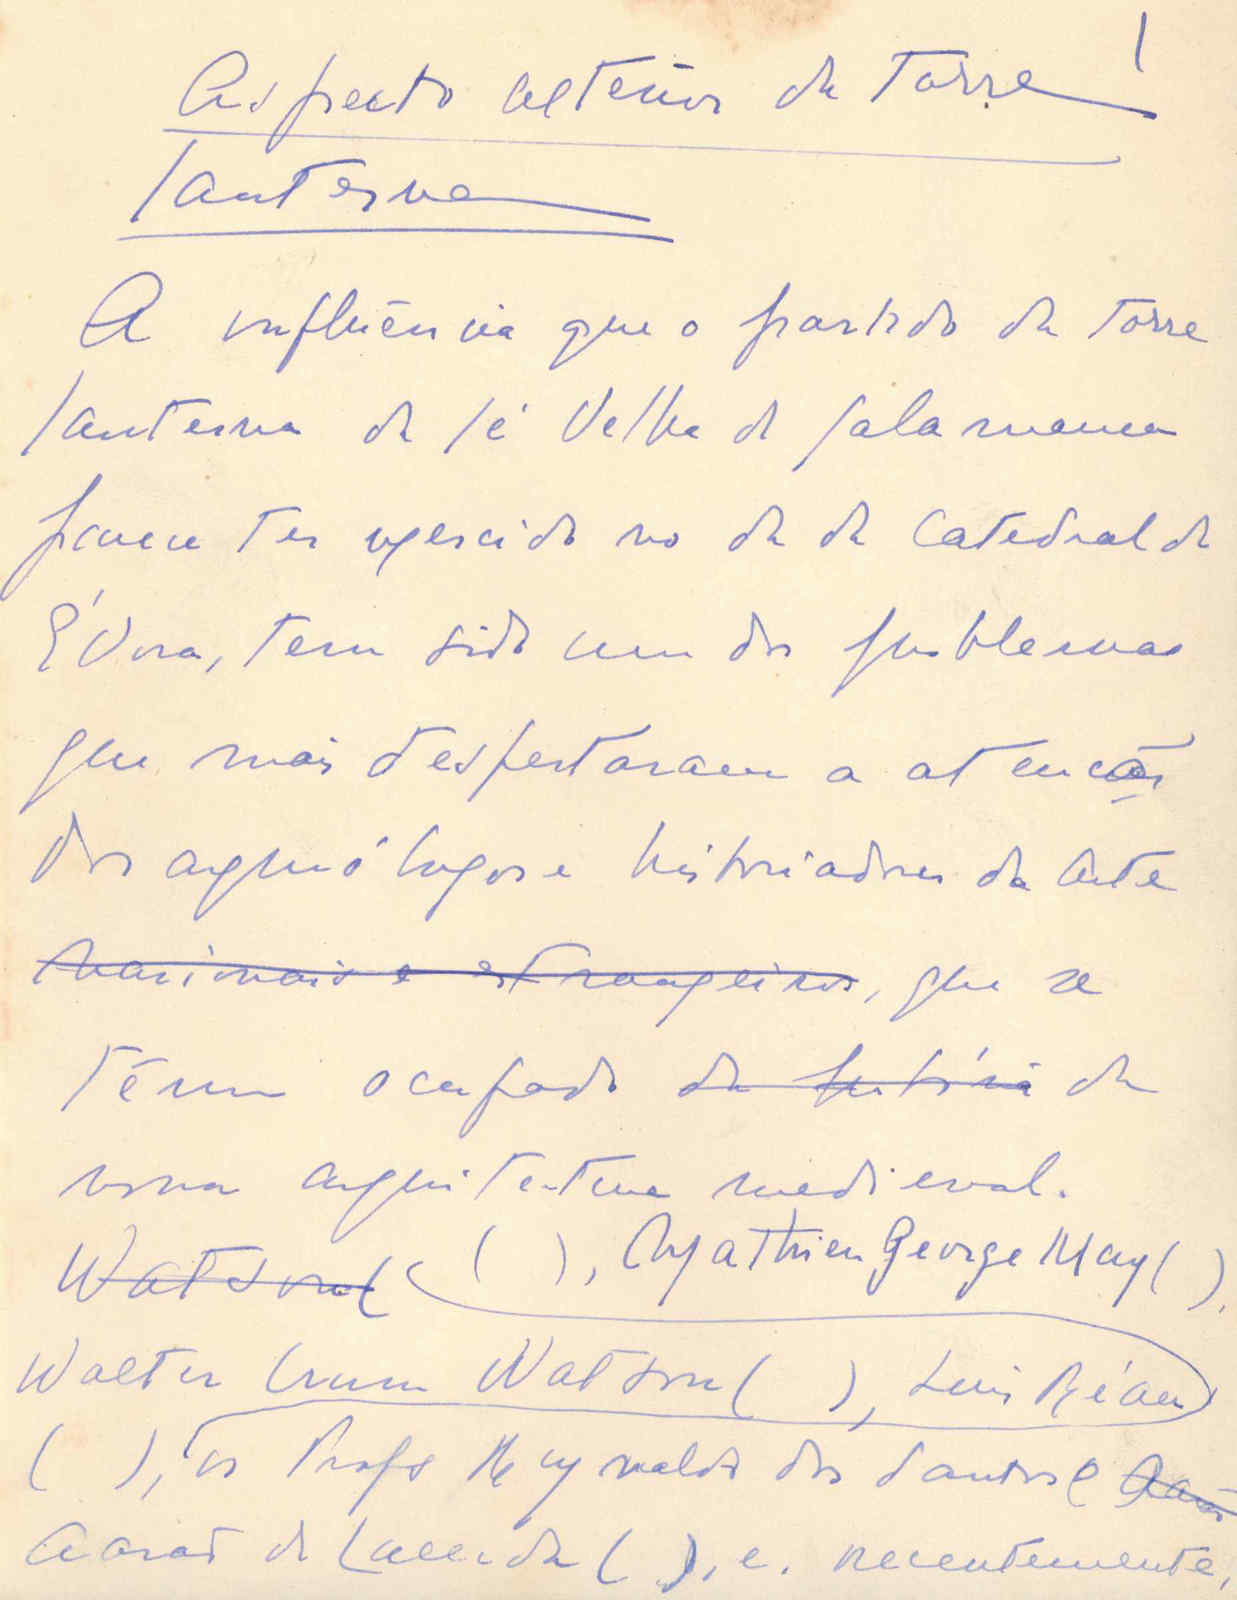 1
Aspecto exterior da Torre
lanterna
A influência que o partido da torre
lanterna da Sé Velha de Salamanca
parece ter exercido no da da Catedral de
Évora, tem sido um dos problemas
que mais despertaram a atenção
dos arqueólogos e historiadores da Arte
nacionais e estrangeiros, que se
têem ocupado da história da
nossa arquitectura medieval.
Watson ( ( ), Mathieu George May ( ),
Walter Crum Watson ( ), Luis Réau
( ), os Profs Reynaldo dos Santos e Aarão
Aarão de Lacerda ( ), e, recentemente,